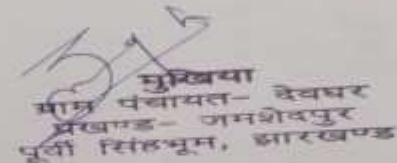 मुखिया
ग्राम पंचायत- देवघर
प्रखण्ड- जमशेदपुर
पूर्वी सिंहभूम, झारखण्ड